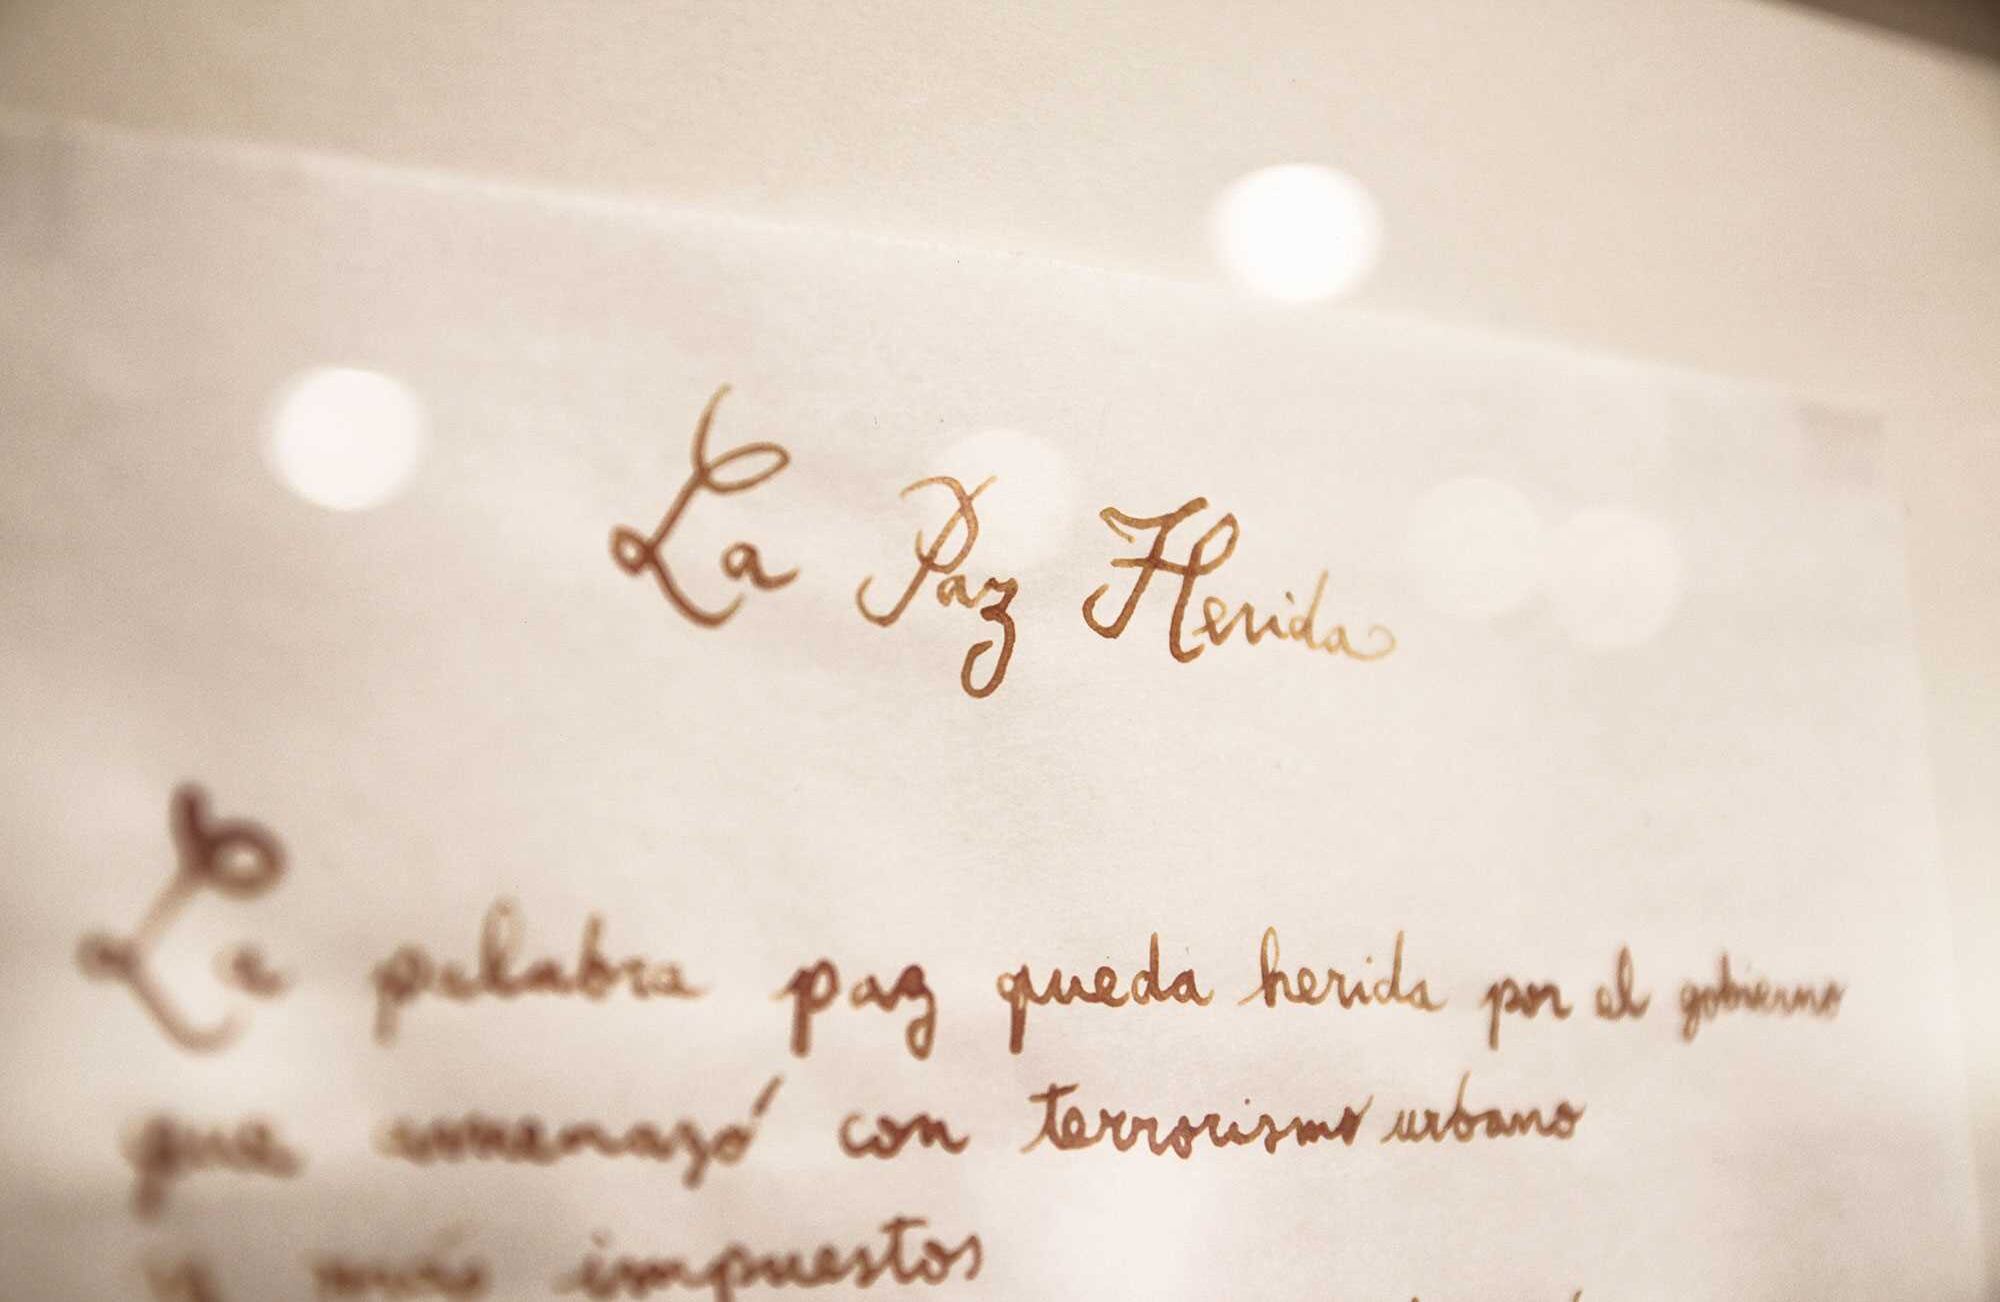 La Paz Herida
La palabra paz queda herida por el gobierno
que amenazó con terrorismo urbano
y más impuestos